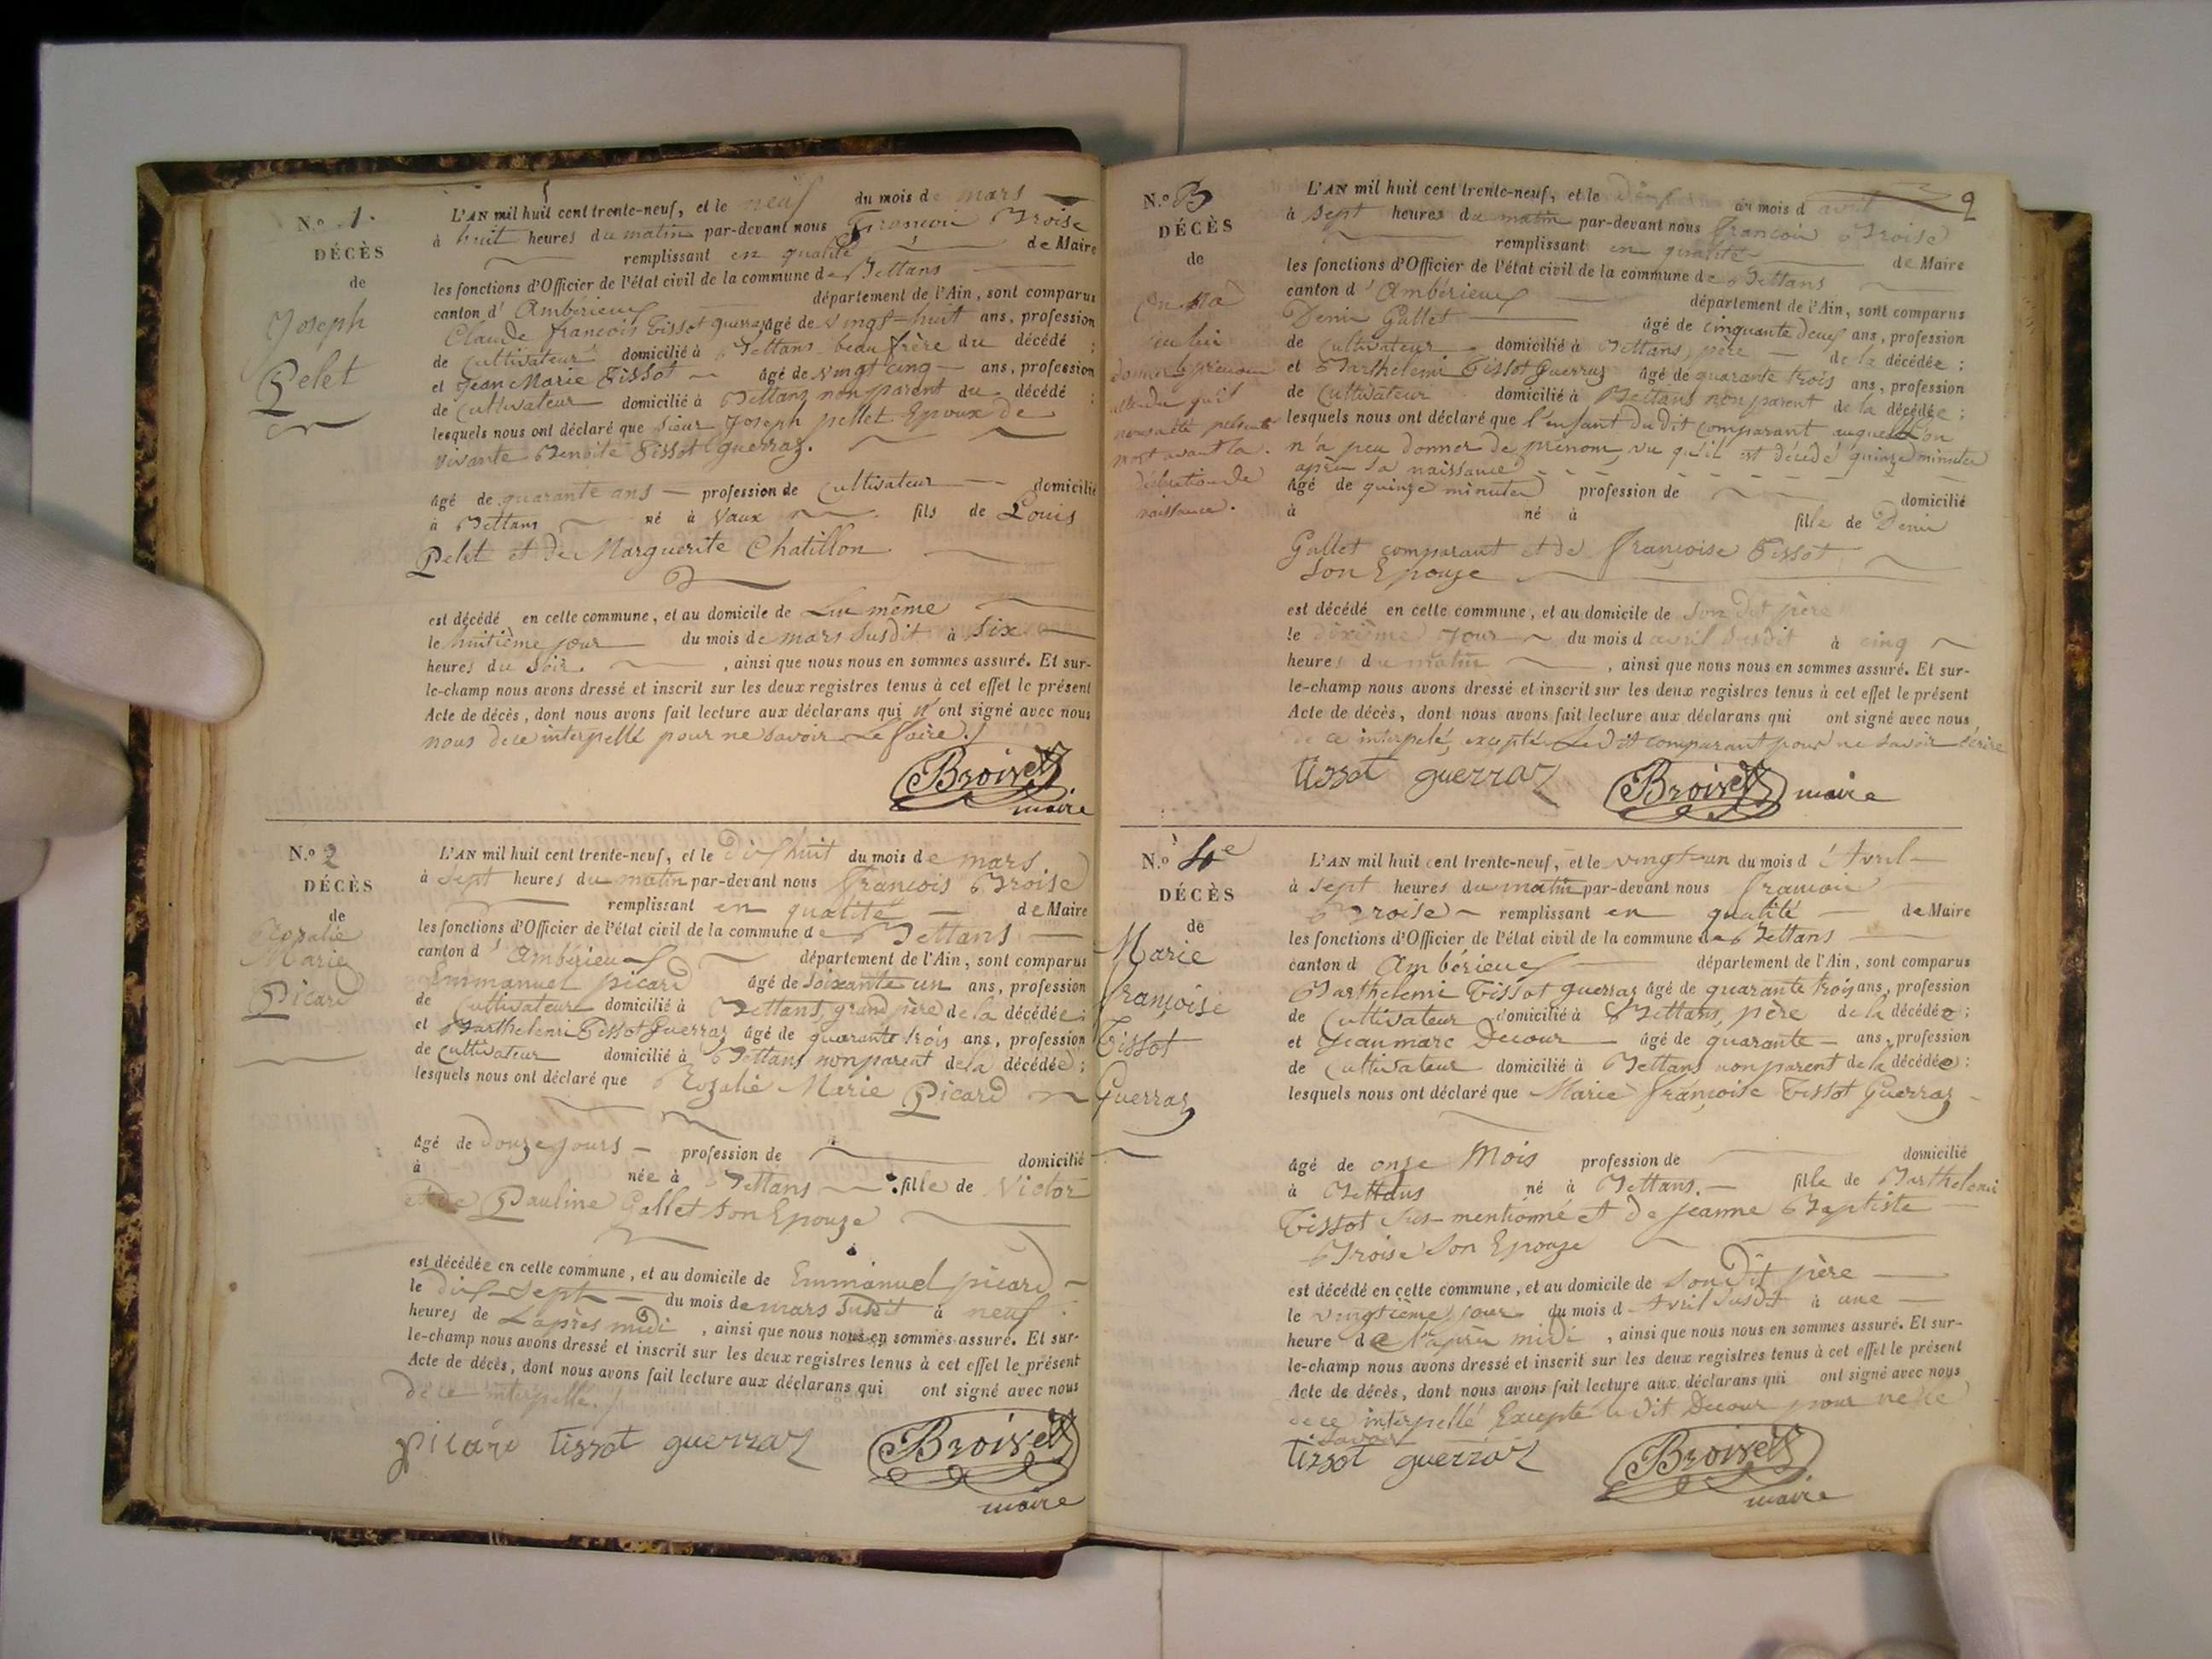 N.º 1.
DÉCÈS
de
Joseph
Pelet
L'AN mil huit cent trente-neuf, et le neuf du mois de mars
à huit heures du matin par-devant nous François Broise
remplissant en qualité de Maire
les fonctions d'Officier de l'état civil de la commune de Bettans
canton d'Ambérieux département de l'Ain, sont comparus
Claude françois Tissot guerraz âgé de vingt-huit ans, profession
de Cultivateur domicilié à Bettans beau frère du décédé ;
et Jean Marie Tissot âgé de vingt cinq ans, profession
de Cultivateur domicilié à Bettans non parent du décédé ;
lesquels nous ont déclaré que sieur Joseph pellet Epoux de
vivante Benoite Tissot guerraz.
âgé de quarante ans profession de Cultivateur domicilié
à Bettans né à Vaux fils de Louis
Pelet et de Marguerite Chatillon
est décédé en cette commune, et au domicile de Lui même
le huitième jour du mois de mars susdit à six
heures du soir. , ainsi que nous nous en sommes assuré. Et sur-
le-champ nous avons dressé et inscrit sur les deux registres tenus à cet effet le présent
Acte de décès, dont nous avons fait lecture aux déclarans qui n'ont signé avec nous
nous de ce interpellé pour ne savoir Le faire.
Broiset
maire
N.º 2
DÉCÈS
de
Rosalie
Marie
Picard
L'AN mil huit cent trente-neuf, et le dix huit du mois de mars
à sept heures du matin par-devant nous françois Broise
remplissant en qualité de Maire
les fonctions d'Officier de l'état civil de la commune de Bettans
canton d'Ambérieux département de l'Ain, sont comparus
Emmanuel picard âgé de soixante un ans, profession
de Cultivateur domicilié à Bettans, grand père de la décédée ;
et Barthelemi Tissot Guerraz âgé de quarante trois ans, profession
de Cultivateur domicilié à Bettans non parent de la décédée ;
lesquels nous ont déclaré que Rozalie Marie Picard
âgé de douze jours profession de domicilié
à née à Bettans fille de Victor
et de Pauline Gallet son Epouze
est décédée en cette commune, et au domicile de Emmanuel picard
le dix-sept du mois de mars susdit à neuf
heures de L'après midi , ainsi que nous nous en sommes assuré. Et sur-
le-champ nous avons dressé et inscrit sur les deux registres tenus à cet effet le présent
Acte de décès, dont nous avons fait lecture aux déclarans qui ont signé avec nous
de ce interpellé.
picard tissot guerraz Broiset
maire
9
N.º 3
DÉCÈS
de
On n'a
pu lui
donner de prénom
attendu qu'il
nous a été présenté
mort avant la
déclaration de
naissance.
L'AN mil huit cent trente-neuf, et le dix du mois d'avril
à sept heures du matin par-devant nous François Broise
remplissant en qualité de Maire
les fonctions d'Officier de l'état civil de la commune de Bettans
canton d'Ambérieux département de l'Ain, sont comparus
Denis Gallet âgé de cinquante deux ans, profession
de Cultivateur domicilié à Bettans père de la décédée ;
et Barthélemi Tissot Guerraz âgé de quarante trois ans, profession
de Cultivateur domicilié à Bettans non parent de la décédée ;
lesquels nous ont déclaré que l'enfant du dit comparant auquel l'on
n'a peu donner de prénom, vu qu'il est décédé quinze minutes
après sa naissance
âgé de quinze minutes profession de domicilié
à né à fille de Denis
Gallet comparant et de françoise Tissot
son Epouze
est décédé en cette commune, et au domicile de son dit père
le dixième jour du mois d'avril susdit à cinq
heures du matin , ainsi que nous nous en sommes assuré. Et sur-
le-champ nous avons dressé et inscrit sur les deux registres tenus à cet effet le présent
Acte de décès, dont nous avons fait lecture aux déclarans qui ont signé avec nous
de ce interpelé, excepté Le dit comparant pour ne savoir l'écrire
tissot guerraz Broiset maire
N.º 4e
DÉCÈS
de
Marie
françoise
Tissot
Guerraz
L'AN mil huit cent trente-neuf, et le vingt-un du mois d'Avril
à sept heures du matin par-devant nous françois
Broise remplissant en qualité de Maire
les fonctions d'Officier de l'état civil de la commune de Bettans
canton d'Ambérieux département de l'Ain, sont comparus
Barthelemi Tissot guerraz âgé de quarante trois ans, profession
de Cultivateur domicilié à Bettans, père de la décédée ;
et Jean marc Decour âgé de quarante ans, profession
de Cultivateur domicilié à Bettans non parent de la décédée :
lesquels nous ont déclaré que Marie françoise Tissot Guerraz
âgé de onze Mois profession de domicilié
à Bettans né à Bettans. fille de Barthelemi
Tissot sus-mentionné et de jeanne Baptiste
Broise son Epouze
est décédé en cette commune, et au domicile de son dit père
le vingtième jour du mois d'Avril susdit à une
heure de l'après midi , ainsi que nous nous en sommes assuré. Et sur-
le-champ nous avons dressé et inscrit sur les deux registres tenus à cet effet le présent
Acte de décès, dont nous avons fait lecture aux déclarans qui ont signé avec nous
de ce interpellé Excepté le dit Decour pour ne le
savoir
tissot guerraz Broiset
maire